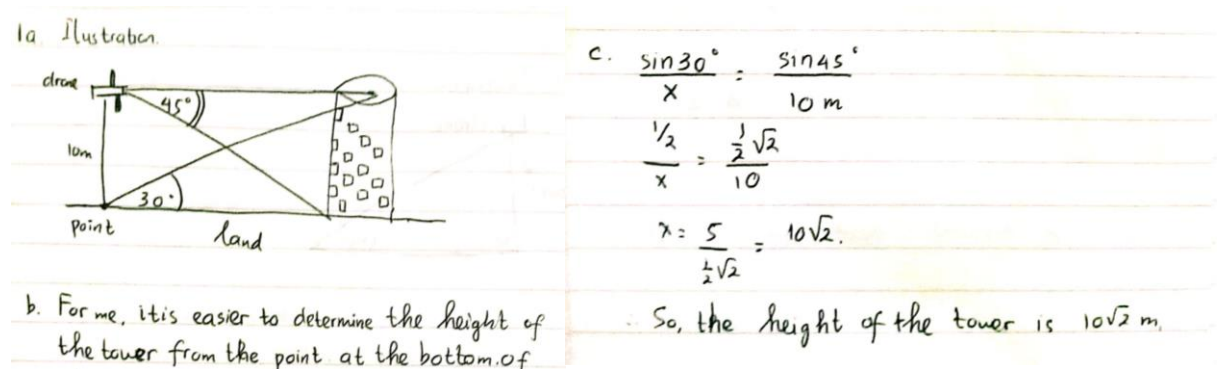 1a. Ilustration.
drone
45°
10m
30°
point
land
b. For me, it is easier to determine the height of
the tower from the point at the bottom of
c. sin30° / x = sin45° / 10 m
1/2 / x = 1/2 √2 / 10
x = 5 / 1/2 √2 = 10√2.
So, the height of the tower is 10√2 m.